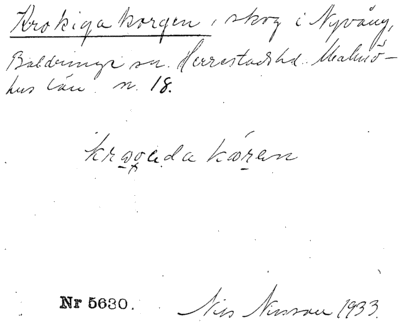 Krokiga korgen, skog i Nyvång,
Baldringe sn. Herrestads hd. Malmö-
hus län. n. 18.
kåren
Nr 5630.
Nils Nilsson 1933.